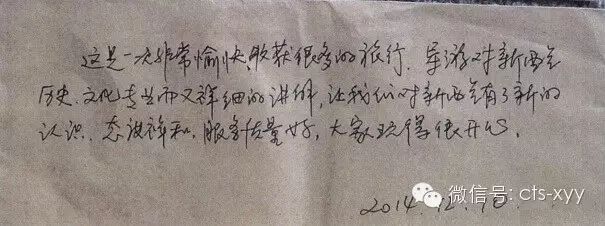 这是一次非常愉快,收获很多的旅行.导游对新西兰
历史.文化专业而又详细的讲解,让我们对新西兰有了新的
认识.态度祥和.服务质量好,大家玩得很开心.
2014.12.10.
微信号: cts-xyy